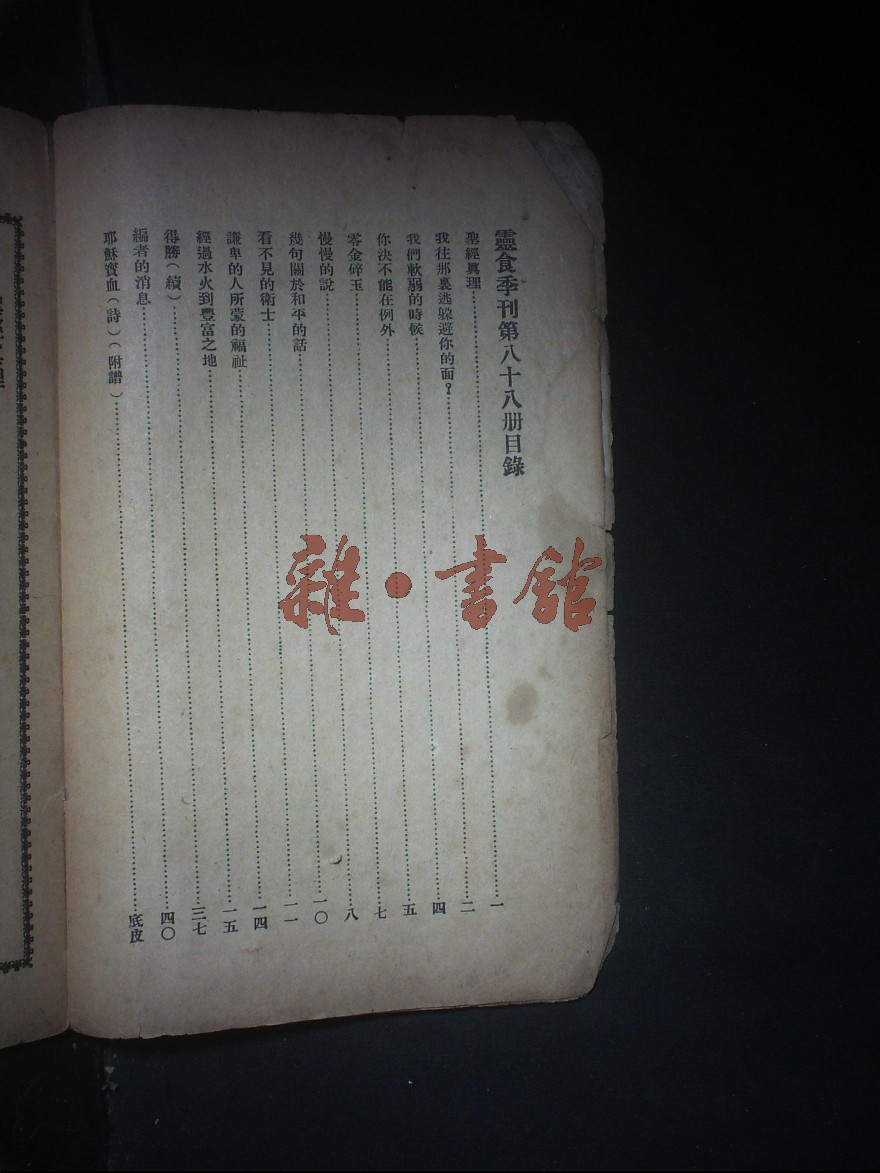 靈食季刊第八十八册目錄
聖經眞理……一
我往那裏逃躱避你的面?……二
我們軟弱的時候……四
你決不能在例外……五
零金碎玉……七
慢慢的說……八
幾句關於和平的話……一〇
看不見的衛士……一一
謙卑的人所蒙的福祉……一四
經過水火到豐富之地……一五
得勝(續)……三七
編者的消息……四〇
耶穌寶血(詩)(附譜)……底皮
雜·書館